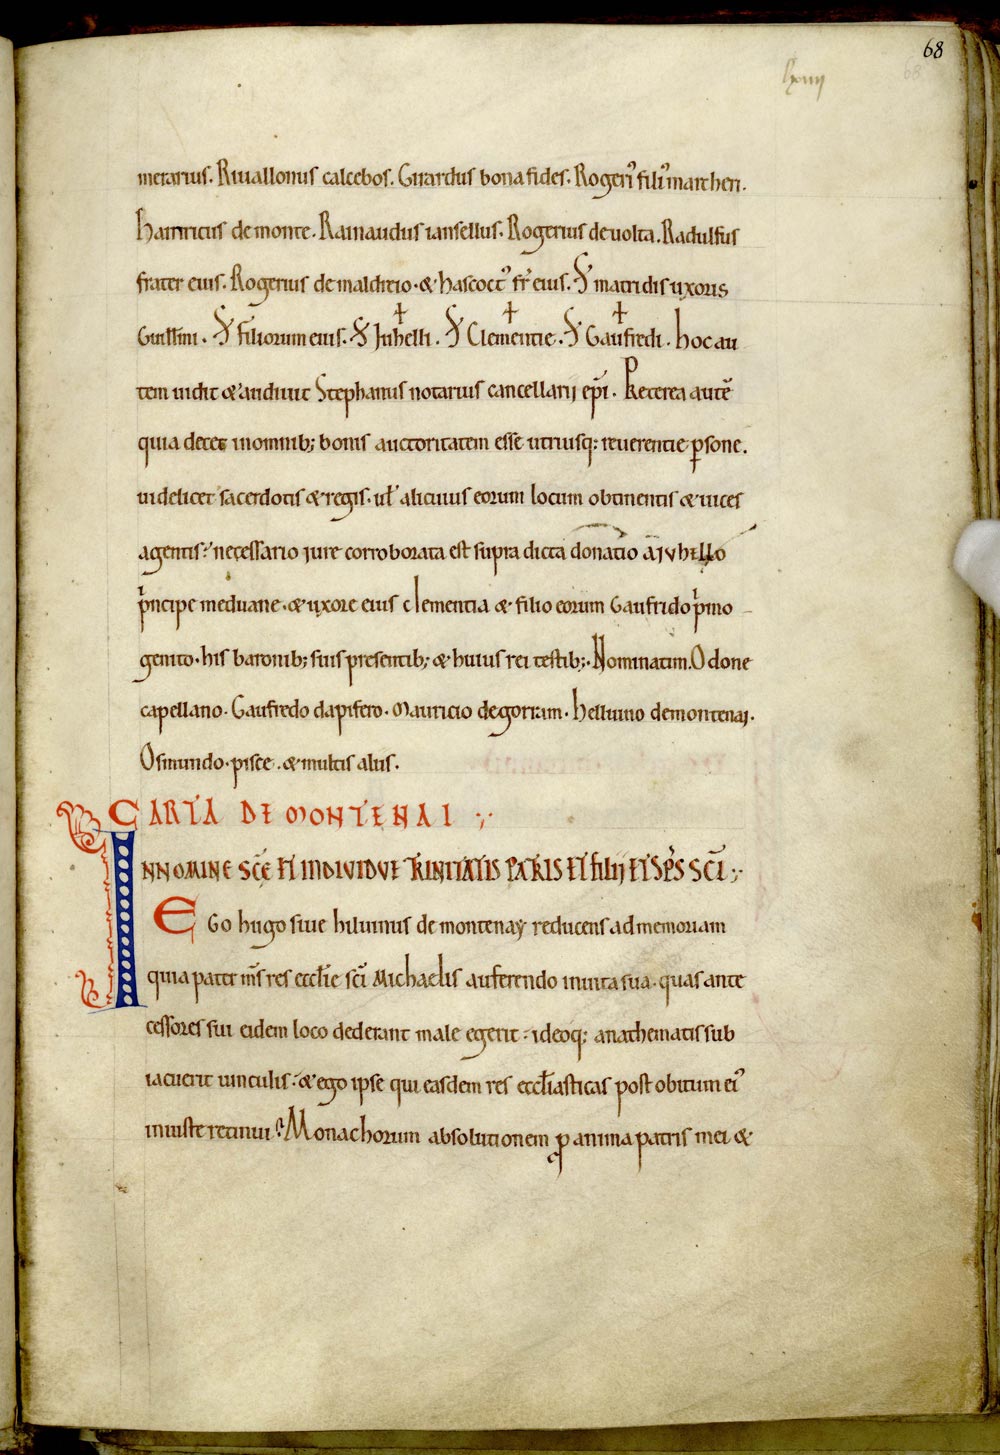 68
lxiiij
metarius. Riuallonus calcebos. Girardus bona fides. Rogeri⁹ fili⁹ matheri.
Hainricus de monte. Rainaudus iansellus. Rogerius de uolta. Radulfus
frater eius. Rogerius de maldreio. & hascoet⁹ fr̄ eius. S matridis uxoris
Guillmi. S filiorum eius. S Juhelli. S Clementie. S Gaufredi. hoc au
tem uidit & audiuit Stephanus notarius cancellarij ep̄i. Preterea autē
quia decet in omnib; bonis auctoritatem esse utriusq; reuerentie ꝑsone.
uidelicet sacerdotis & regis. ul̄ alicuius eorum locum obtinentis & uices
agentis: necessario iure corroborata est supra dicta donatio a iuhello
p̍ncipe meduane. & uxore eius clementia & filio eorum Gaufrido p̍mo
genito. his baronib; suis presentib; & huius rei testib;. Nominatim. Odone
capellano. Gaufredo dapifero. Mauricio de gorram. helluino de montenaj.
Osmundo. pisce. & multis aliis.
CARTA DE MONTENAI
IN NOMINE SCĒ ET INDIVIDUE TRINITATIS PATRIS ET filij ET SP̄S SCĪ
EGo hugo siue hiluinus de montenay reducens ad memoriam
quia pater m̄s res eccl̄ie sc̄i Michaelis auferendo in uita sua. quas ante
cessores sui eidem loco dederant male egerit. ideoq; anathematis sub
iacuerit uinculis: & ego ipse qui easdem res eccl̄iasticas post obitum ei⁹
iniuste retinui. Monachorum absolutionem ꝓ anima patris mei &